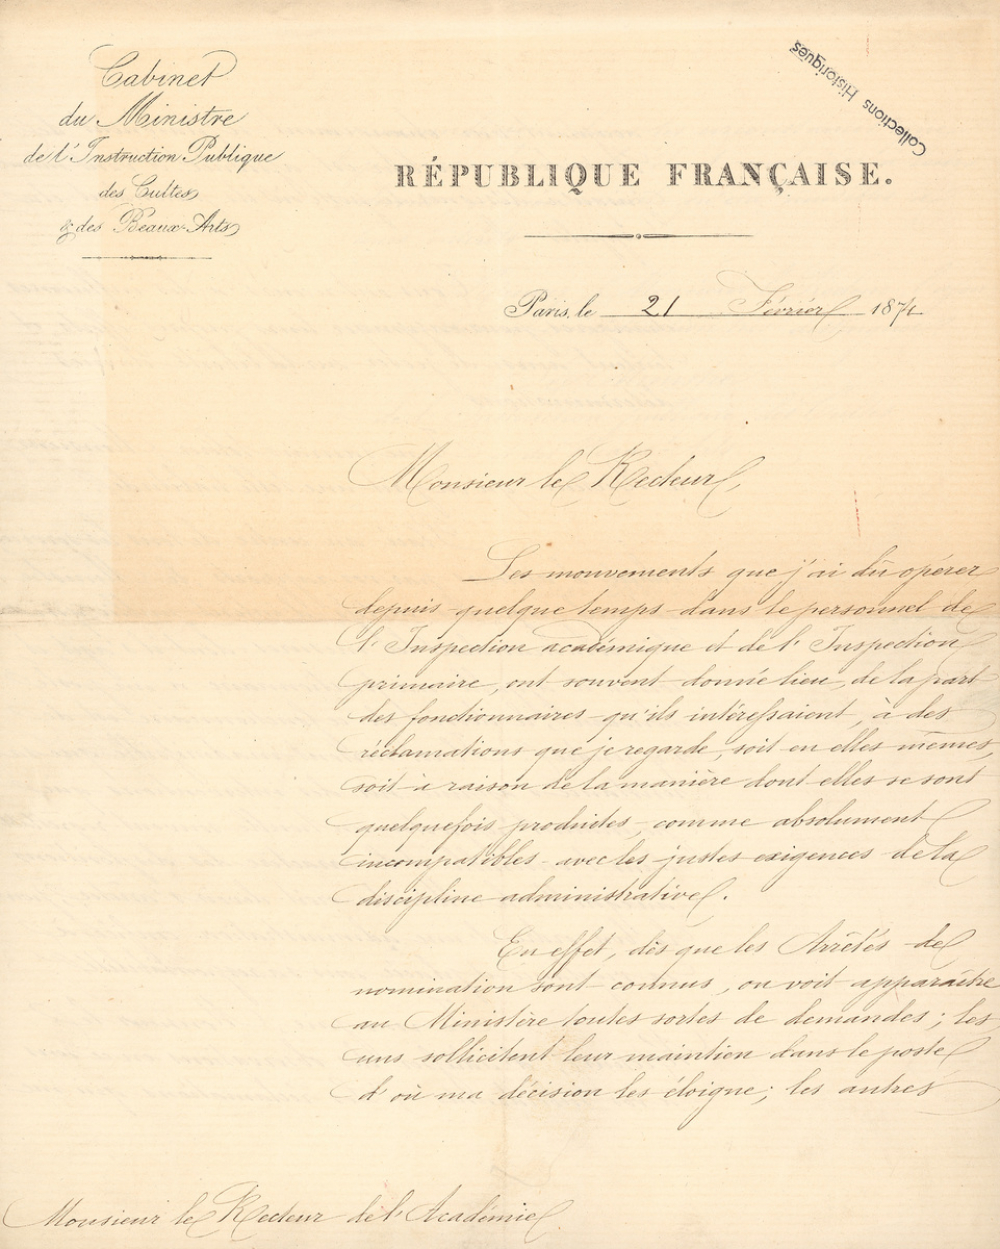 Cabinet
du Ministre
de l'Instruction Publique
des Cultes
& des Beaux-Arts
Collections Historiques
RÉPUBLIQUE FRANÇAISE.
Paris, le 21 Février 1874
Monsieur le Recteur,
Les mouvements que j'ai dû opérer
depuis quelque temps dans le personnel de
l'Inspection académique et de l'Inspection
primaire, ont souvent donné lieu, de la part
des fonctionnaires qu'ils intéressaient, à des
réclamations que je regarde, soit en elles mêmes,
soit à raison de la manière dont elles se sont
quelquefois produites, comme absolument
incompatibles avec les justes exigences de la
discipline administrative.
En effet, dès que les Arrêtés de
nomination sont connus, on voit apparaître
au Ministère toutes sortes de demandes; les
uns sollicitent leur maintien dans le poste
d'où ma décision les éloigne; les autres
Monsieur le Recteur de l'Académie